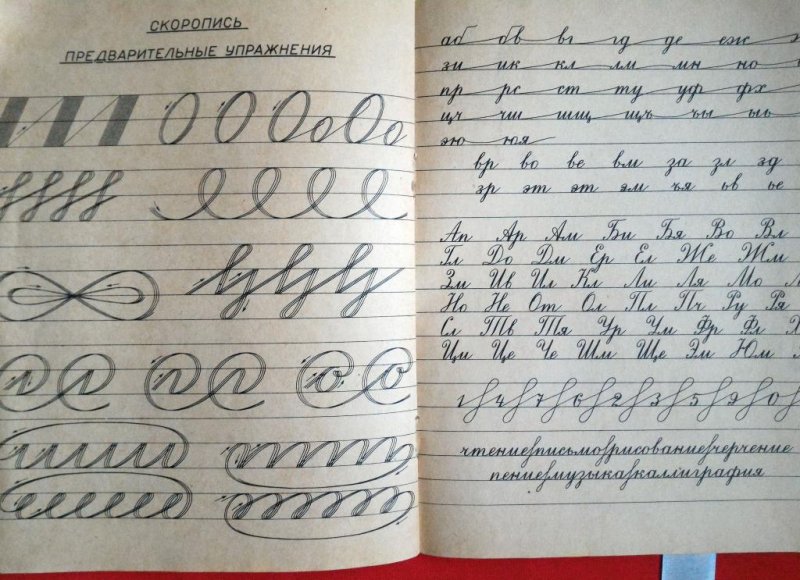 СКОРОПИСЬ
ПРЕДВАРИТЕЛЬНЫЕ УПРАЖНЕНИЯ
аб бв вг гд де еж
зи ик кл лм мн но
пр рс ст ту уф фх
цч чш шщ щъ ъы ыь
эю юя
вр во ве вм за зл зд
зр эт эт эм ъя ьв ье
Ап Ар Ам Би Бя Во Вл
Гл До Ди Ер Ел Же Жм
Зи Ив Ил Кл Ли Ля Мо
Но Не От Ол Пл Пч Ру Ря
Сл Тв Тя Ур Ум Фр Фл Х
Ци Це Че Шм Ще Эм Юм
1 4 7 6 2 3 5 9 0
чтение письмо рисование черчение
пение музыка каллиграфия